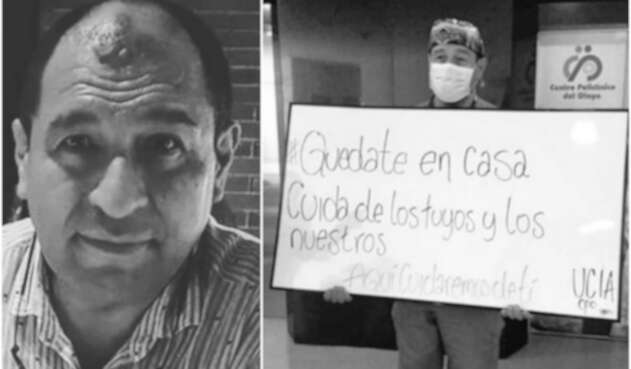 Centro Policlínico
del Olaya
#Quedate en casa
Cuida de los tuyos y los
nuestros
#AquiCuidaremosdeti
UCIA
CPO